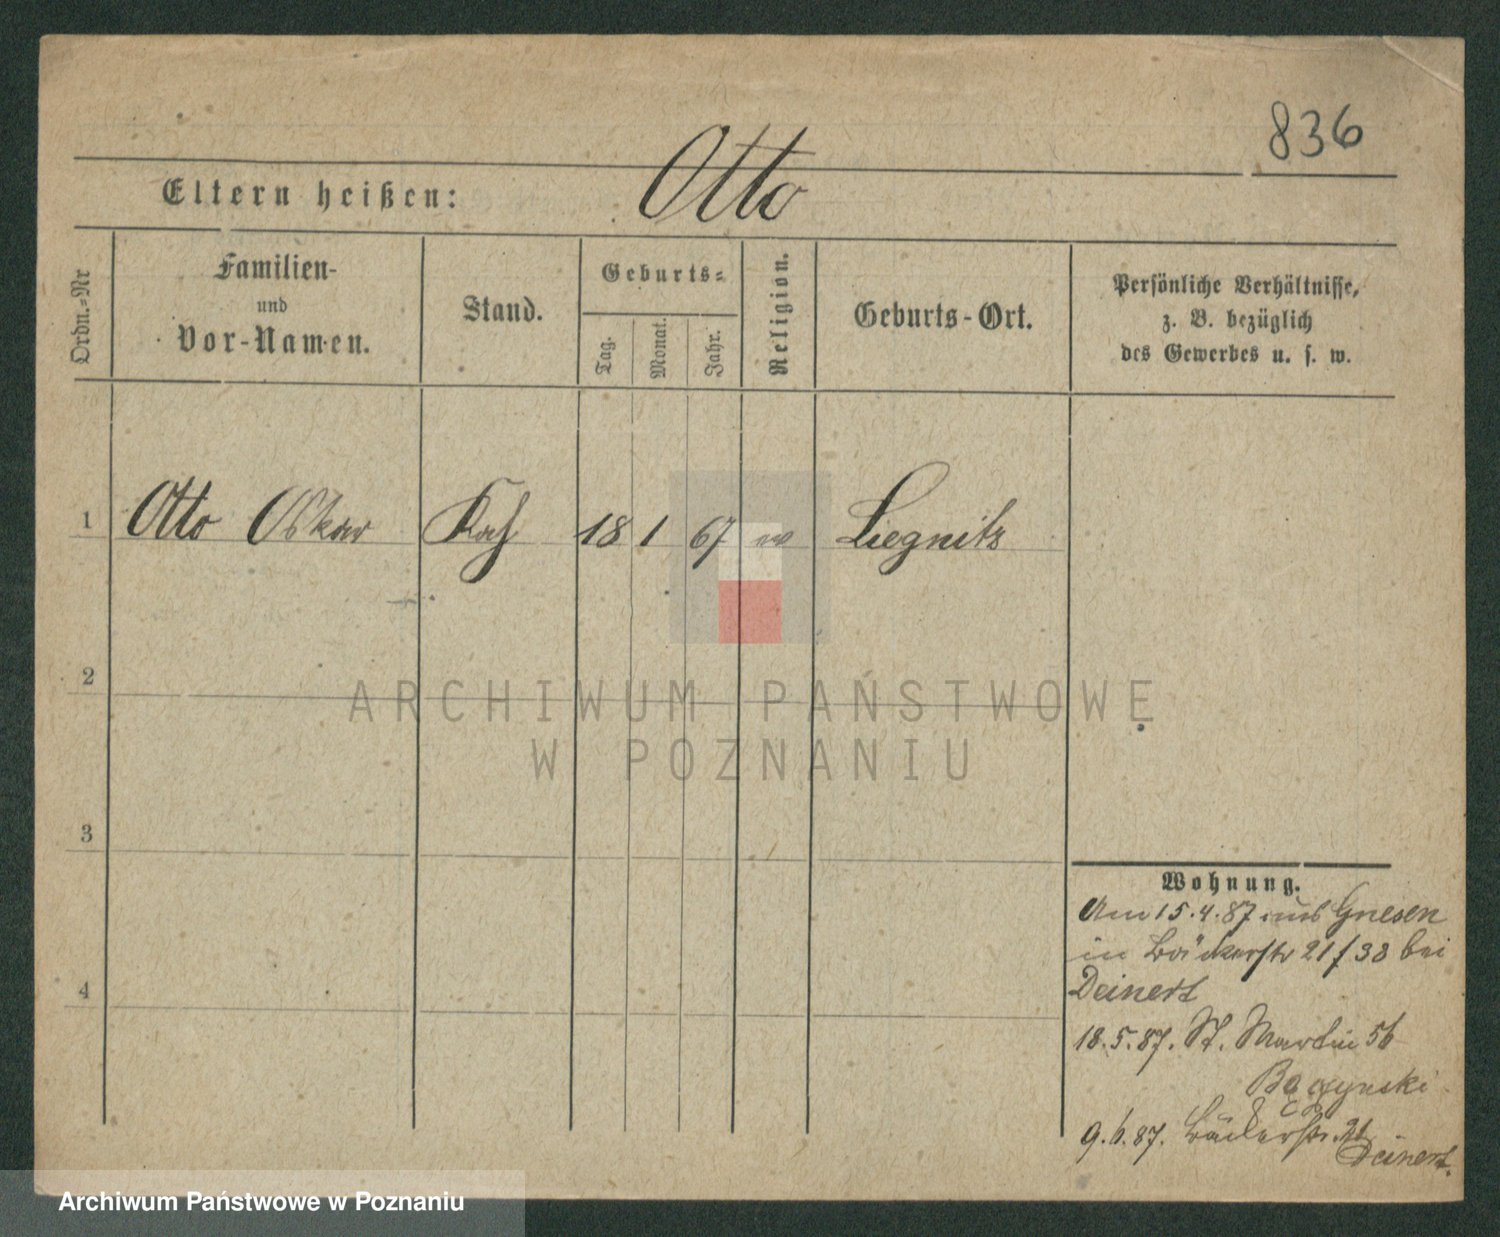 836
Otto
Eltern heißen:
Ordn.-Nr
Familien-
und
Vor-Namen.
Stand.
Geburts-
Tag.
Monat.
Jahr.
Religion.
Geburts-Ort.
Persönliche Verhältnisse,
z. B. bezüglich
des Gewerbes u. s. w.
1 Otto Oskar Koch 18 1 67 Liegnitz
2
3
4
ARCHIWUM PAŃSTWOWE
W POZNANIU
Wohnung.
Am 15.4.87 aus Gnesen
in Bäckerstr 21/33 bei
Deinert
18.5.87. St. Martin 56
9.6.87. Bäckerstr. 21
Deinert.
Archiwum Państwowe w Poznaniu